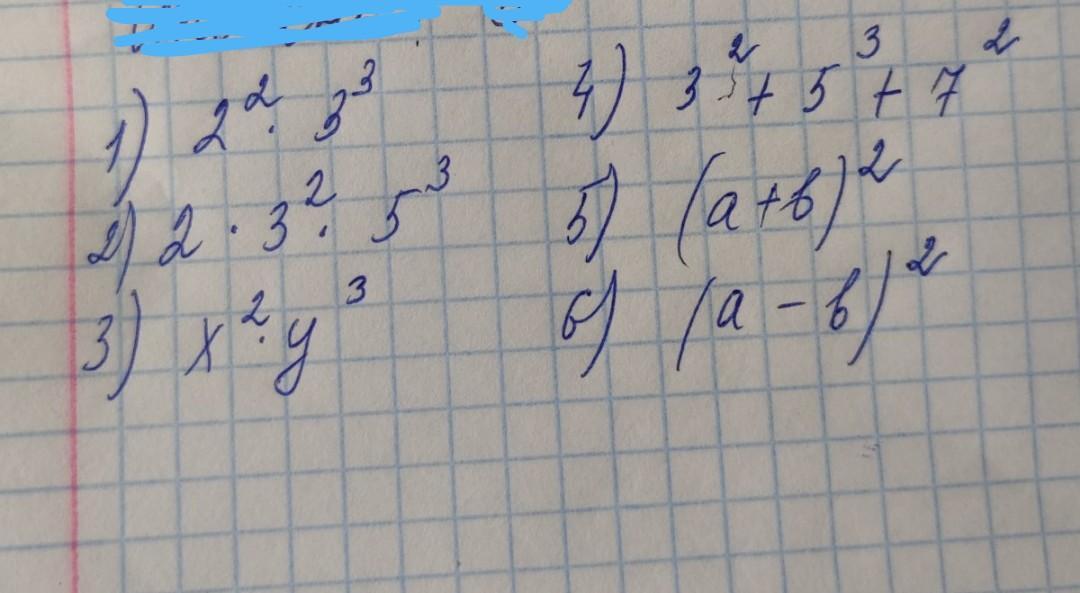 1) 2² · 3³
2) 2 · 3² · 5³
3) x² · y³
4) 3² + 5³ + 7²
5) (a+b)²
6) (a - b)²